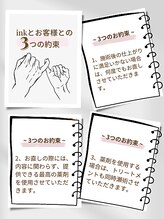 inkとお客様との
3つの約束
~3つのお約束~
1、施術後の仕上がり
に満足いかない場合
は、何度でもお直し
させていただきま
す。
~3つのお約束~
2、お直しの際には、
内容に関わらず、提
供できる最高の薬剤
を使用させていただ
きます。
~3つのお約束~
3、薬剤を使用する
場合は、トリートメ
ントも同時施術させ
ていただきます。